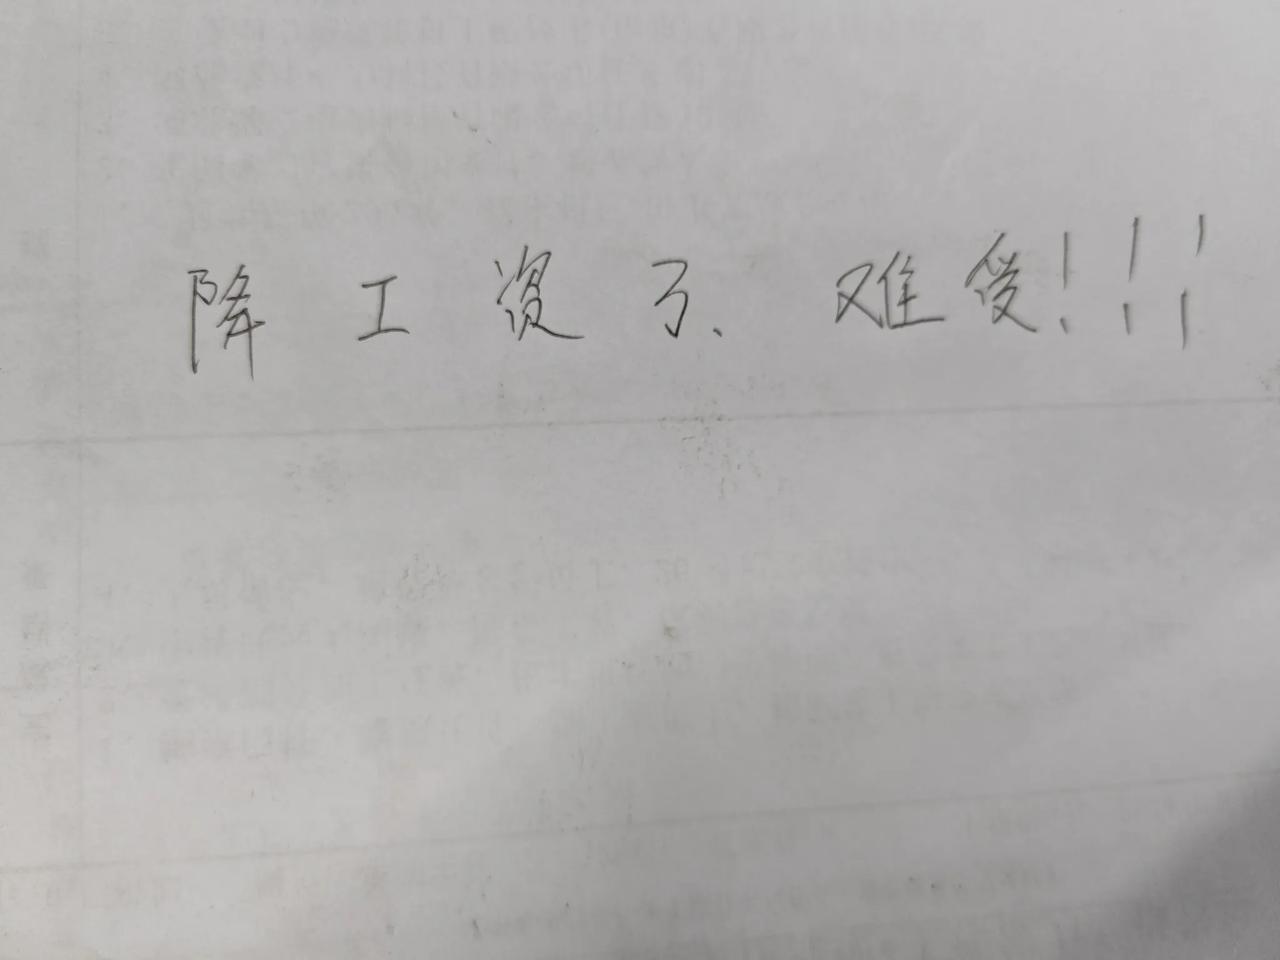 降工资了、难受!!!